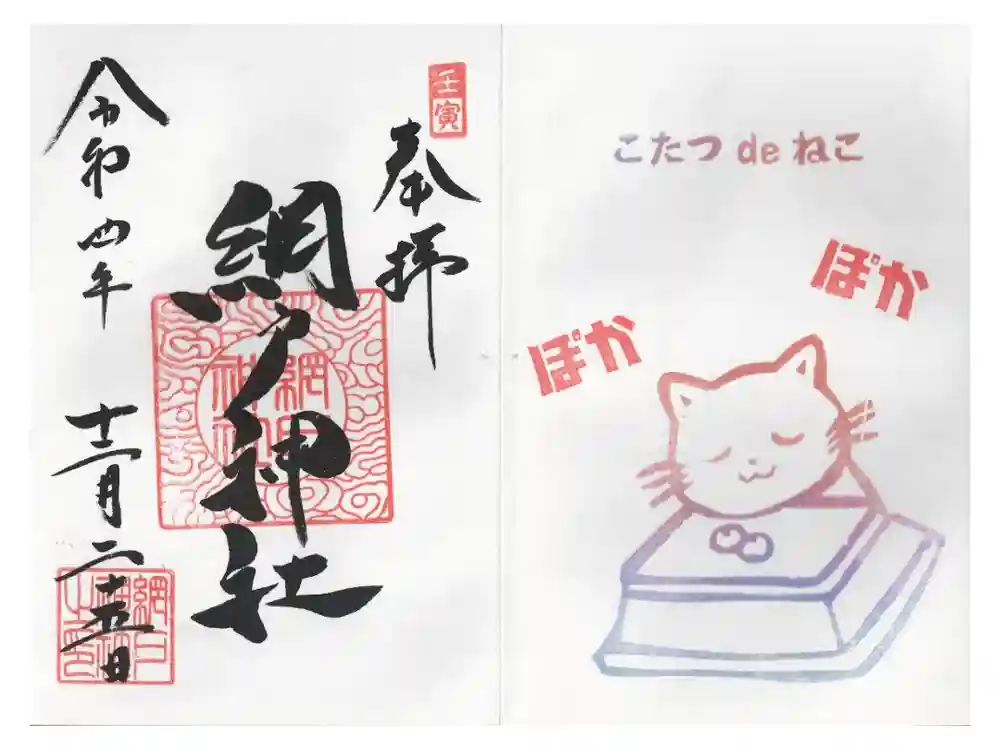 壬寅
奉拝
網戸神社
令和四年
十二月二十五日
網戸神社
こたつ de ねこ
ぽか
ぽか